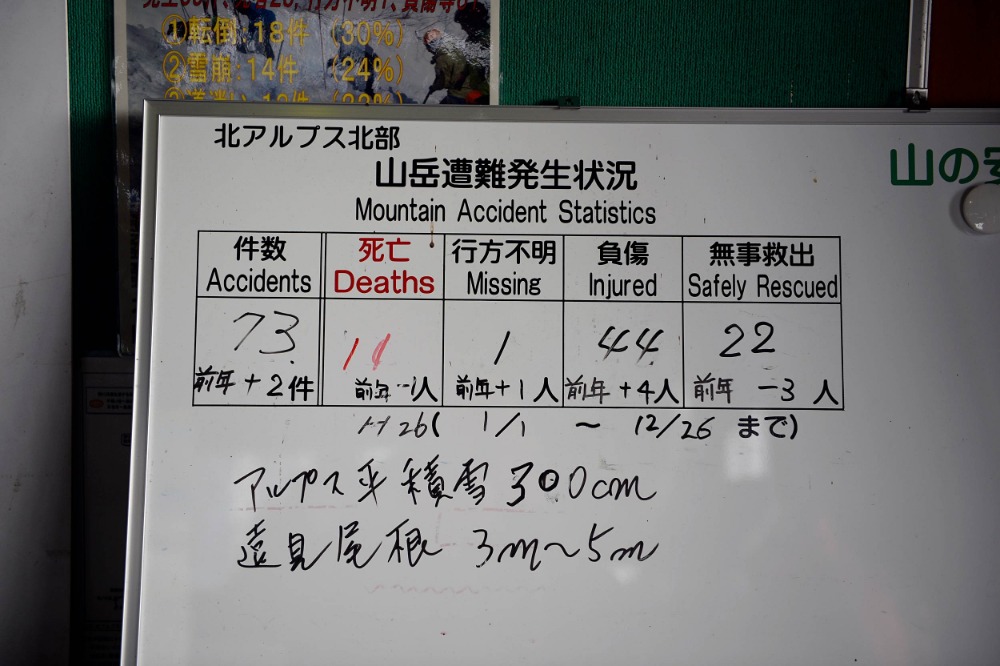 ①転倒:18件 (30%)
②雪崩:14件 (24%)
北アルプス北部
山岳遭難発生状況
Mountain Accident Statistics
件数 死亡 行方不明 負傷 無事救出
Accidents Deaths Missing Injured Safely Rescued
73 11 1 44 22
前年+2件 前年-1人 前年+1人 前年+4人 前年-3人
H26( 1/1 ~ 12/26 まで)
アルプス平積雪300cm
遠見尾根 3m~5m
山の